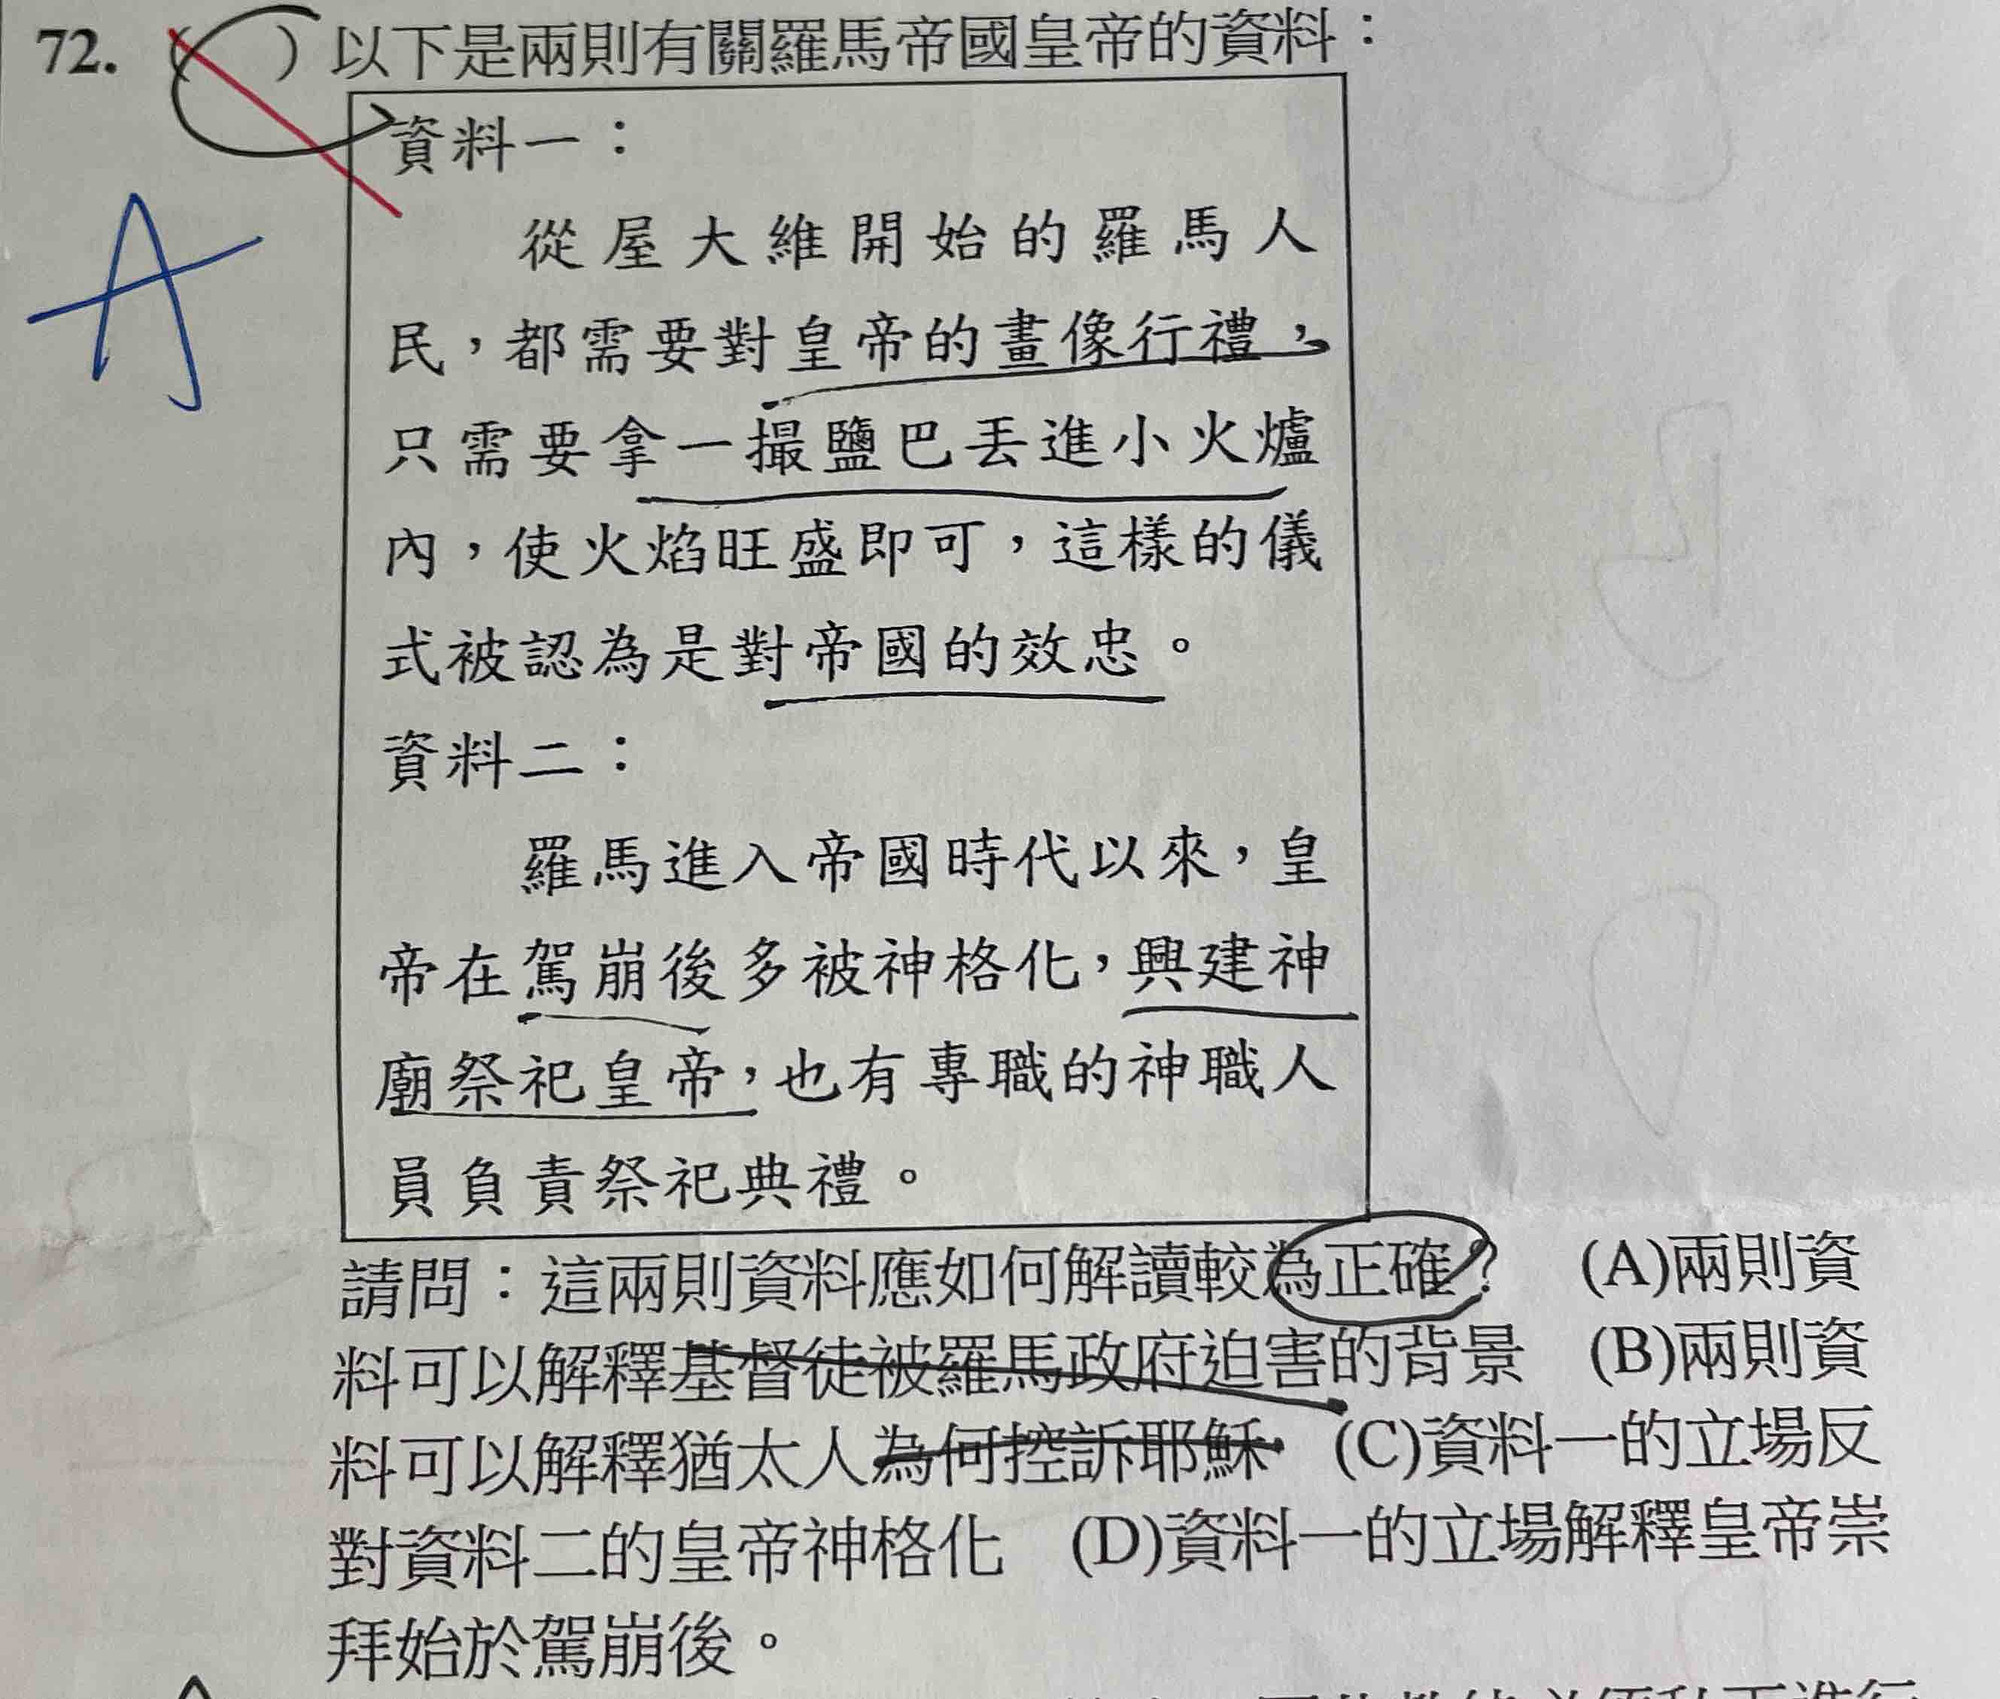 72. ( ) 以下是兩則有關羅馬帝國皇帝的資料：
資料一：
從屋大維開始的羅馬人
民，都需要對皇帝的畫像行禮，
只需要拿一撮鹽巴丟進小火爐
內，使火焰旺盛即可，這樣的儀
式被認為是對帝國的效忠。
A
資料二：
羅馬進入帝國時代以來，皇
帝在駕崩後多被神格化，興建神
廟祭祀皇帝，也有專職的神職人
員負責祭祀典禮。
請問：這兩則資料應如何解讀較為正確？ (A)兩則資
料可以解釋基督徒被羅馬政府迫害的背景 (B)兩則資
料可以解釋猶太人為何控訴耶穌 (C)資料一的立場反
對資料二的皇帝神格化 (D)資料一的立場解釋皇帝崇
拜始於駕崩後。